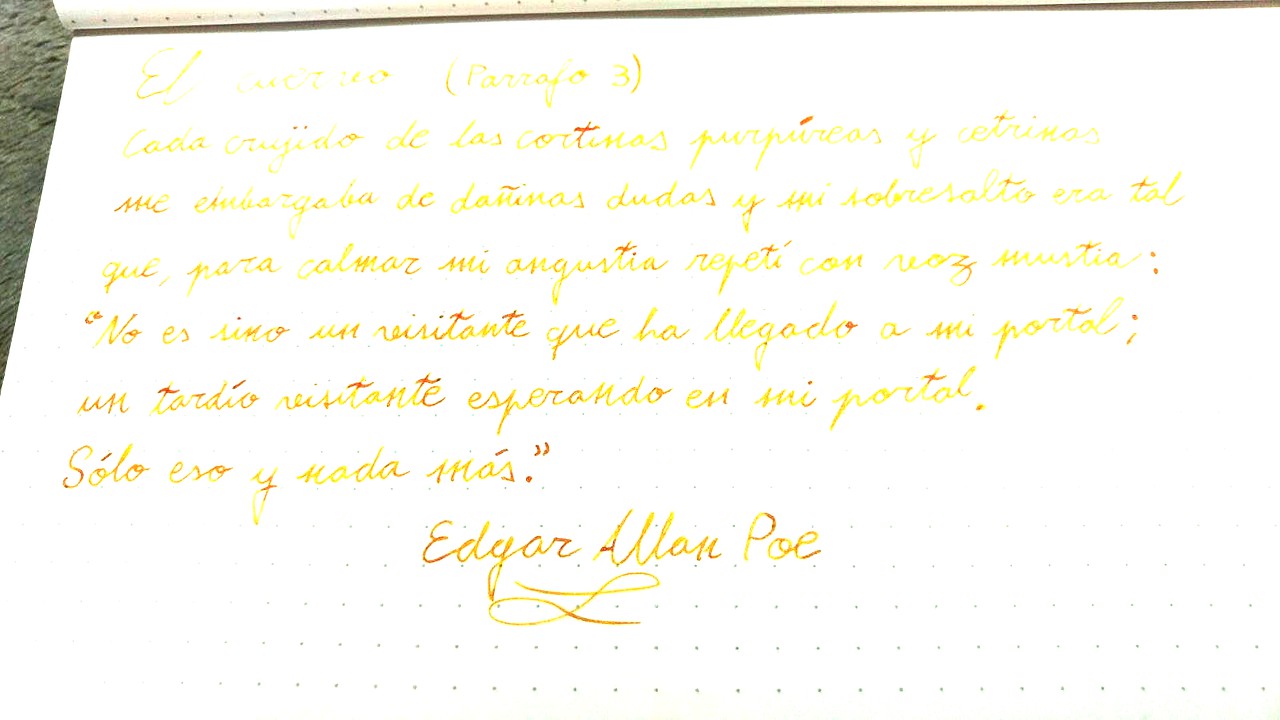 El cuervo (Parrafo 3)
Cada crujido de las cortinas purpúreas y cetrinas
me embargaba de dañinas dudas y mi sobresalto era tal
que, para calmar mi angustia repetí con voz mustia:
"No es sino un visitante que ha llegado a mi portal;
un tardío visitante esperando en mi portal.
Sólo eso y nada más."
Edgar Allan Poe